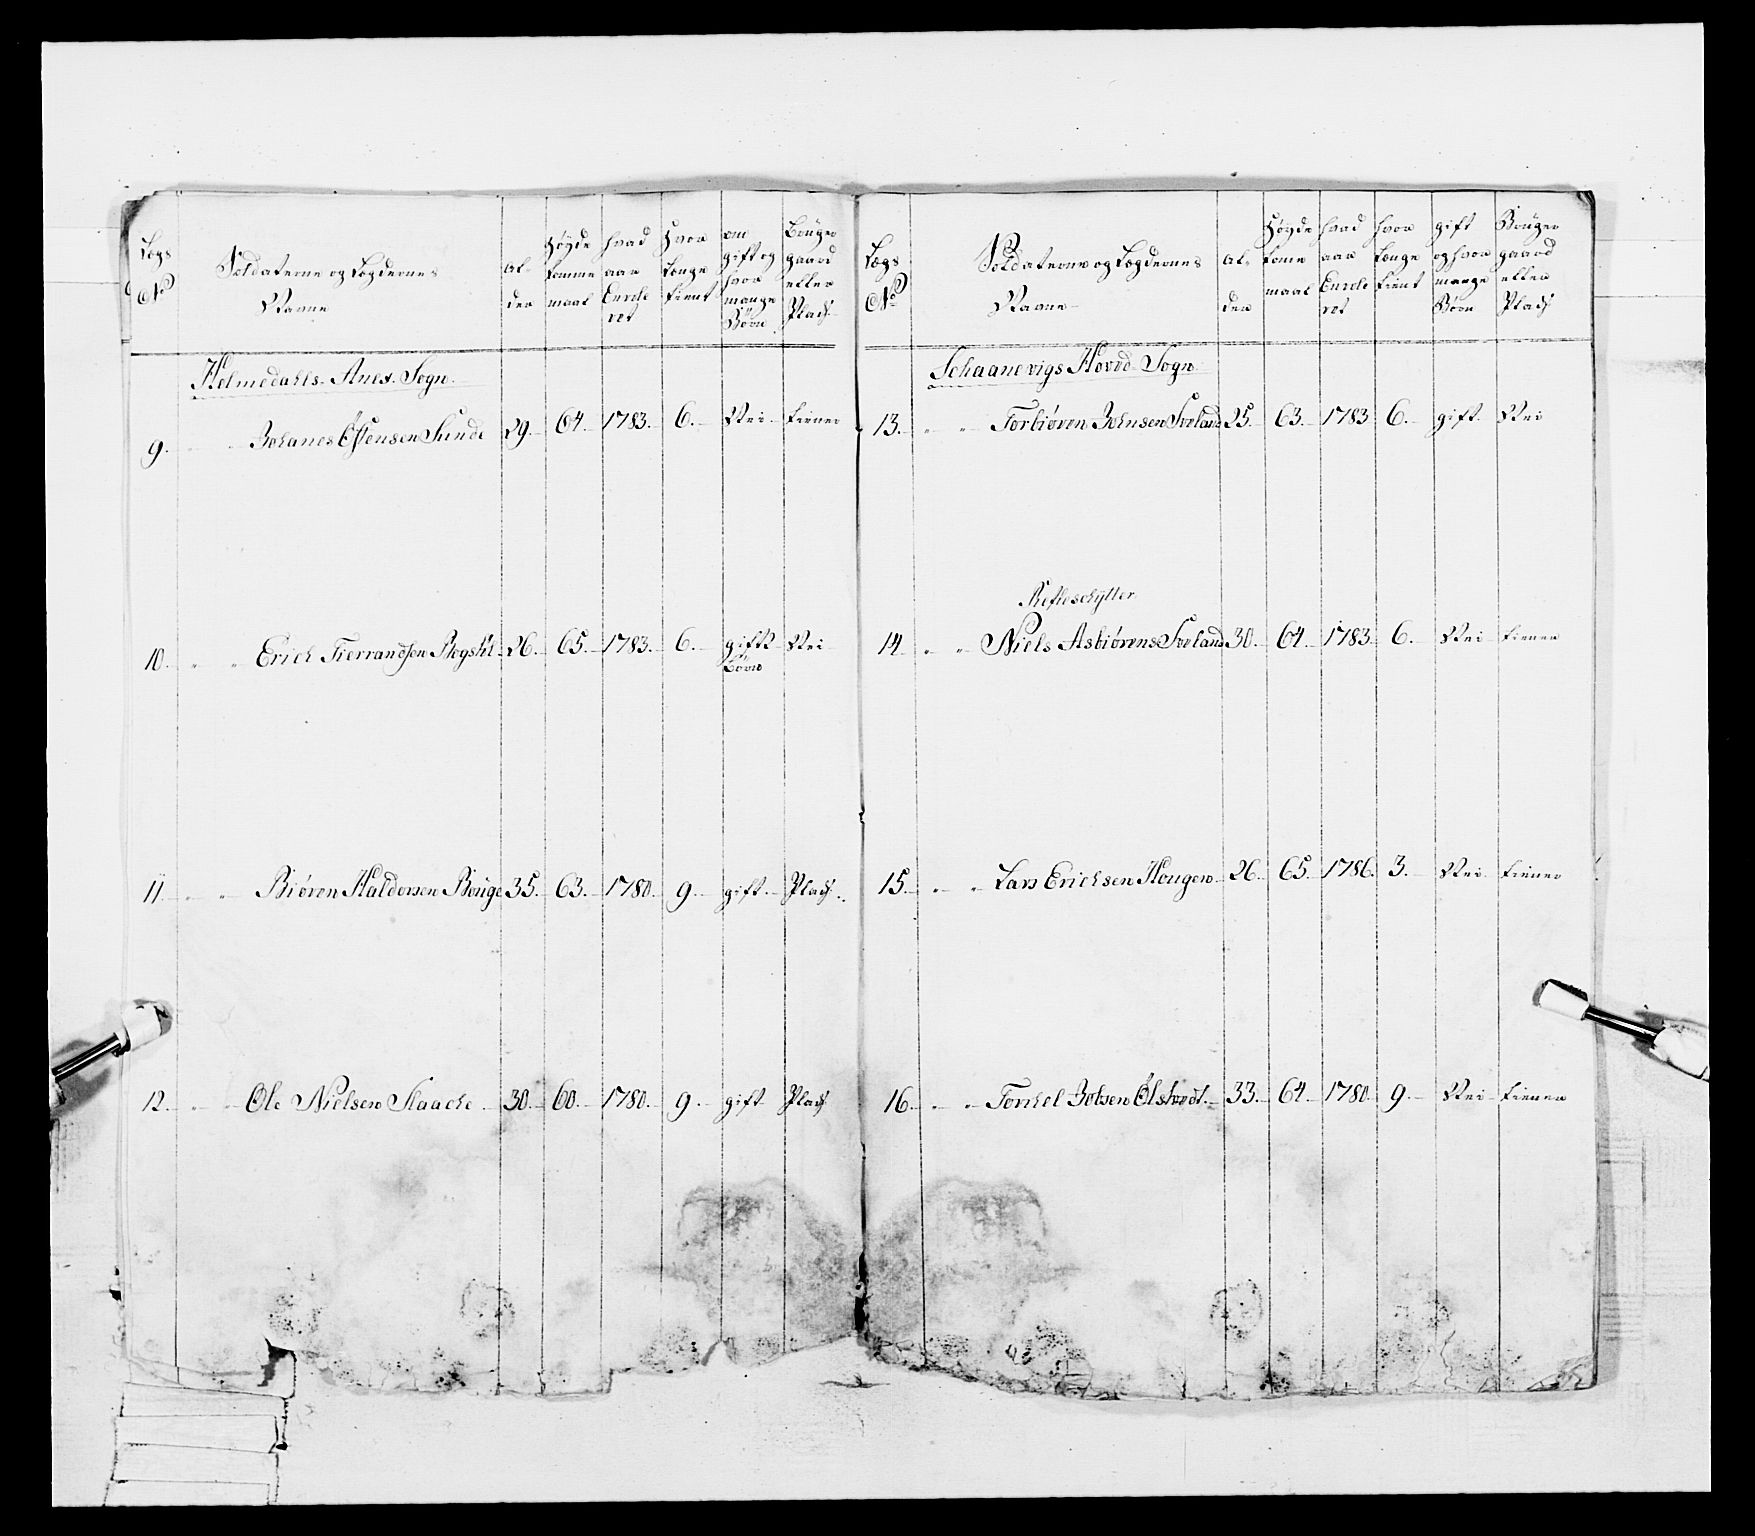 Lægs No
Soldaterne og Lægdernes Navne
Al-der
Høyde tomme maal
hvad aar Enrole ret
Hvor længe tient
om gift og hvor mange Børn
Bruger gaard eller Plads
Helmedahls Anex Sogn.
9. " " Johanes Østensen Sunde 29. 64. 1783. 6. Nei tiener
10. " " Erich Tierrandsen 26. 65. 1783. 6. gift 2 Børn Nei
11. " " Biøren Haldorsen Borge 35. 63. 1780. 9. gift Plads
12. " " Ole Nielsen Staache 30. 60. 1780. 9. gift Plads
Lægs No
Soldaterne og Lægdernes Navne
Al-der
Høyde tome maal
hvad aar Enrole ret
hvor længe tient
gift og hvor mange Børn
Bruger gaard eller Plads
Schaanevigs Hoved Sogn
13. " " Torbiøren Johnsen Tveland 25. 63. 1783 6. gift Nei
Refleschytter
14 " " Niels Asbiørens Tveland 30. 64. 1783. 6. Nei tiener
15. " " Lars Erichsen Hougen 26. 65. 1786. 3. Nei tiener
16. " " Torchel Ølstvedt 33. 64. 1780 9. Nei tiener